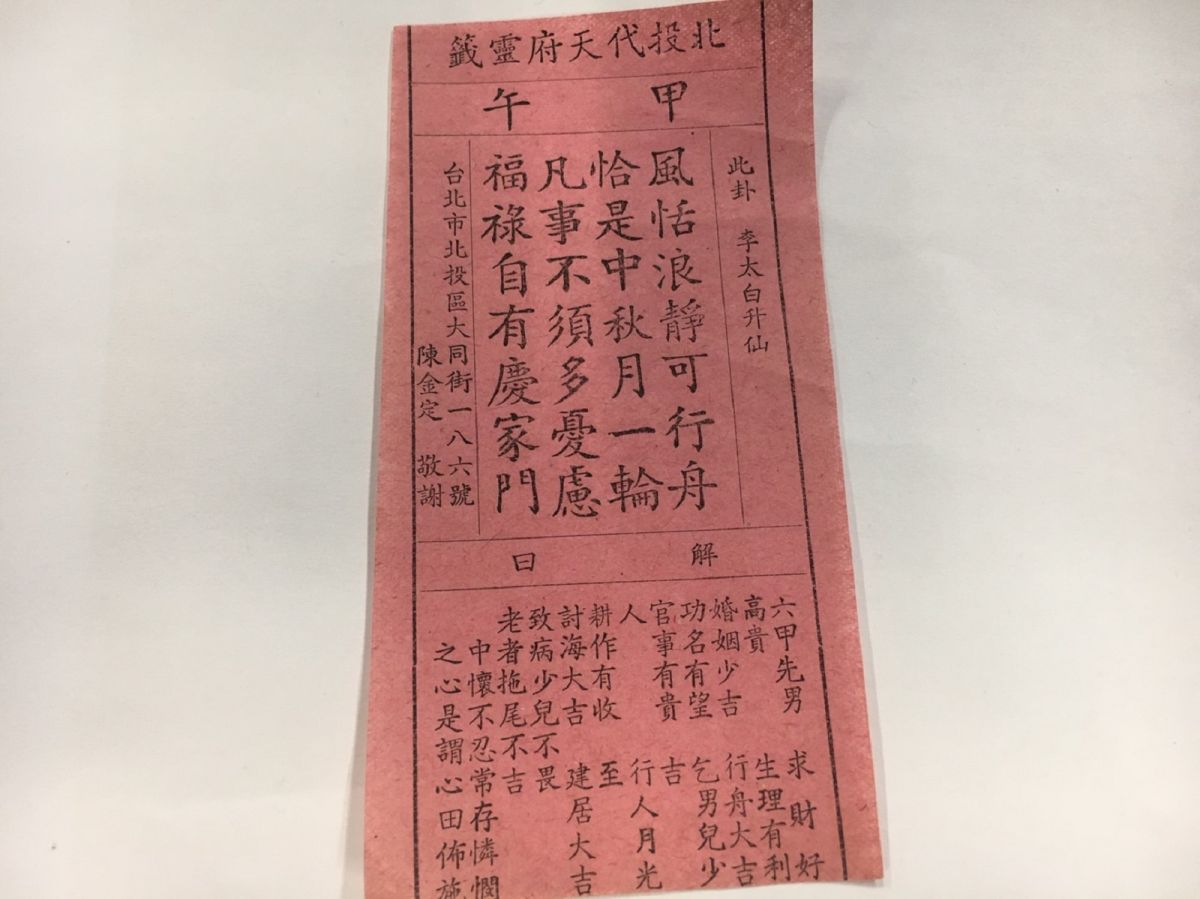 北投代天府靈籤
甲午
此卦 李太白升仙
風恬浪靜可行舟
恰是中秋月一輪
凡事不須多憂慮
福祿自有慶家門
台北市北投區大同街一八六號
陳金定 敬謝
解曰
六甲先男
高貴
婚姻少吉
功名有望
官事有貴
人
耕作有收
討海大吉
致病少兒不畏
老者拖尾不吉
求財好
生理有利
行舟大吉
乞男兒少
吉
行人月光
至
建居大吉
中懷不忍常存憐憫
之心是謂心田佈施